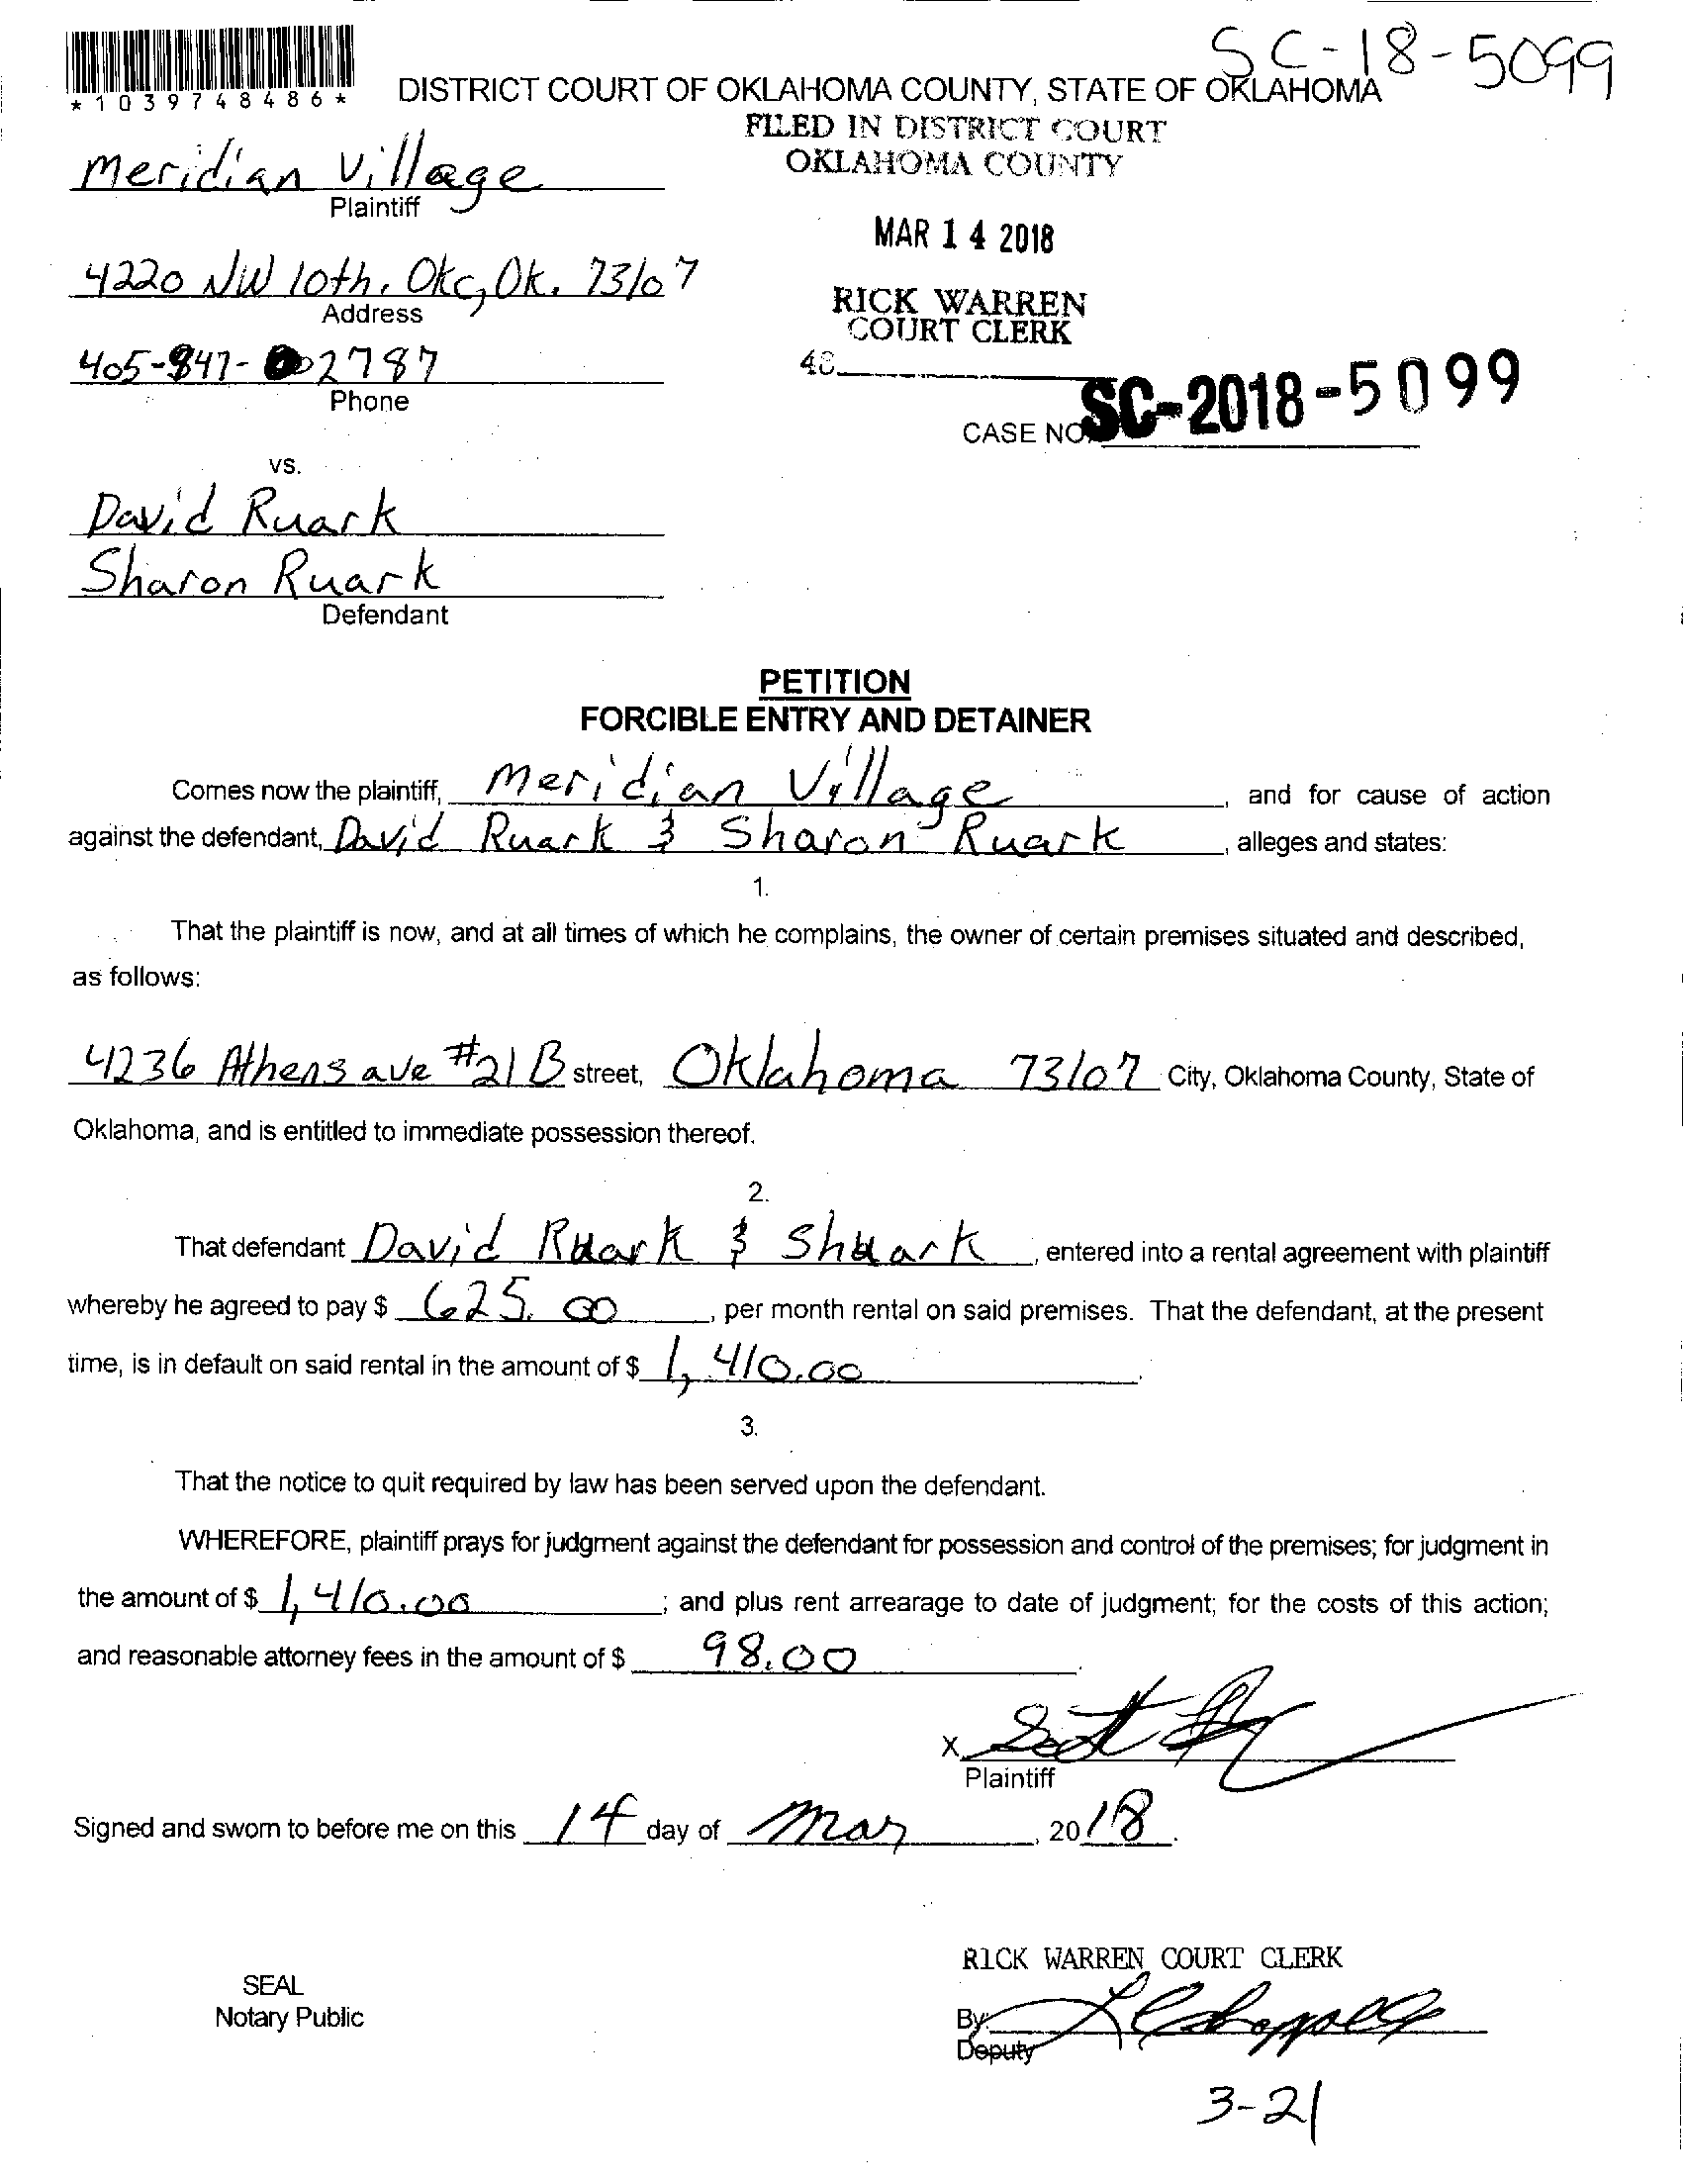 SC-18-5099
*1039748486*
DISTRICT COURT OF OKLAHOMA COUNTY, STATE OF OKLAHOMA
FILED IN DISTRICT COURT
OKLAHOMA COUNTY
Meridian Village
Plaintiff
MAR 14 2018
4220 NW 10th, Okc, Ok. 73107
Address
RICK WARREN
COURT CLERK
405-947-2787
Phone
48
CASE NO. SC-2018-5099
vs.
David Ruark
Sharon Ruark
Defendant
PETITION
FORCIBLE ENTRY AND DETAINER
Comes now the plaintiff, Meridian Village, and for cause of action
against the defendant, David Ruark & Sharon Ruark, alleges and states:
1.
That the plaintiff is now, and at all times of which he complains, the owner of certain premises situated and described,
as follows:
4236 Athens ave #21 B street, Oklahoma 73107 City, Oklahoma County, State of
Oklahoma, and is entitled to immediate possession thereof.
2.
That defendant David Ruark & Shuark, entered into a rental agreement with plaintiff
whereby he agreed to pay $ 625.00, per month rental on said premises. That the defendant, at the present
time, is in default on said rental in the amount of $ 1,410.00.
3.
That the notice to quit required by law has been served upon the defendant.
WHEREFORE, plaintiff prays for judgment against the defendant for possession and control of the premises; for judgment in
the amount of $ 1,410.00; and plus rent arrearage to date of judgment; for the costs of this action;
and reasonable attorney fees in the amount of $ 98.00.
X
Plaintiff
Signed and sworn to before me on this 14 day of Mar, 2018.
RICK WARREN COURT CLERK
SEAL
Notary Public
By:
Deputy
3-21